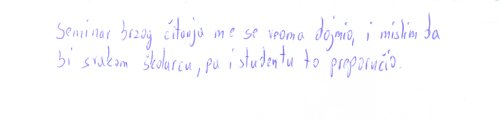 Seminar brzog čitanja me se veoma dojmio, i mislim da
bi svakom školarcu, pa i studentu to preporučio.